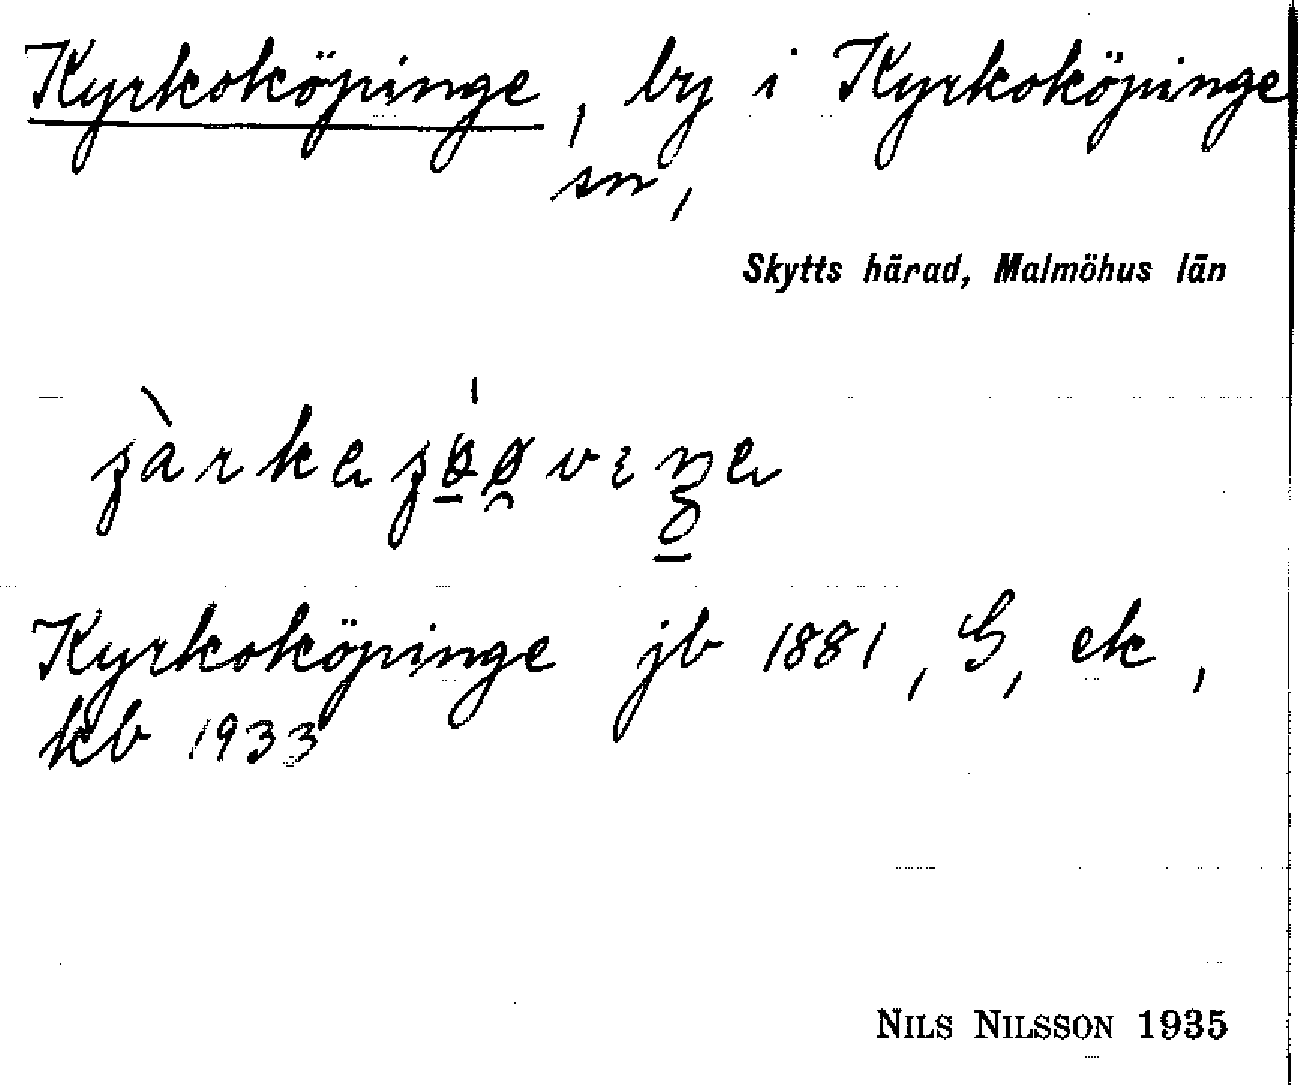 Kyrkoköpinge, by i Kyrkoköpinge
sn,
Skytts härad, Malmöhus län
Kyrkoköpinge jb 1881, G, ek,
kb 1933
NILS NILSSON 1935